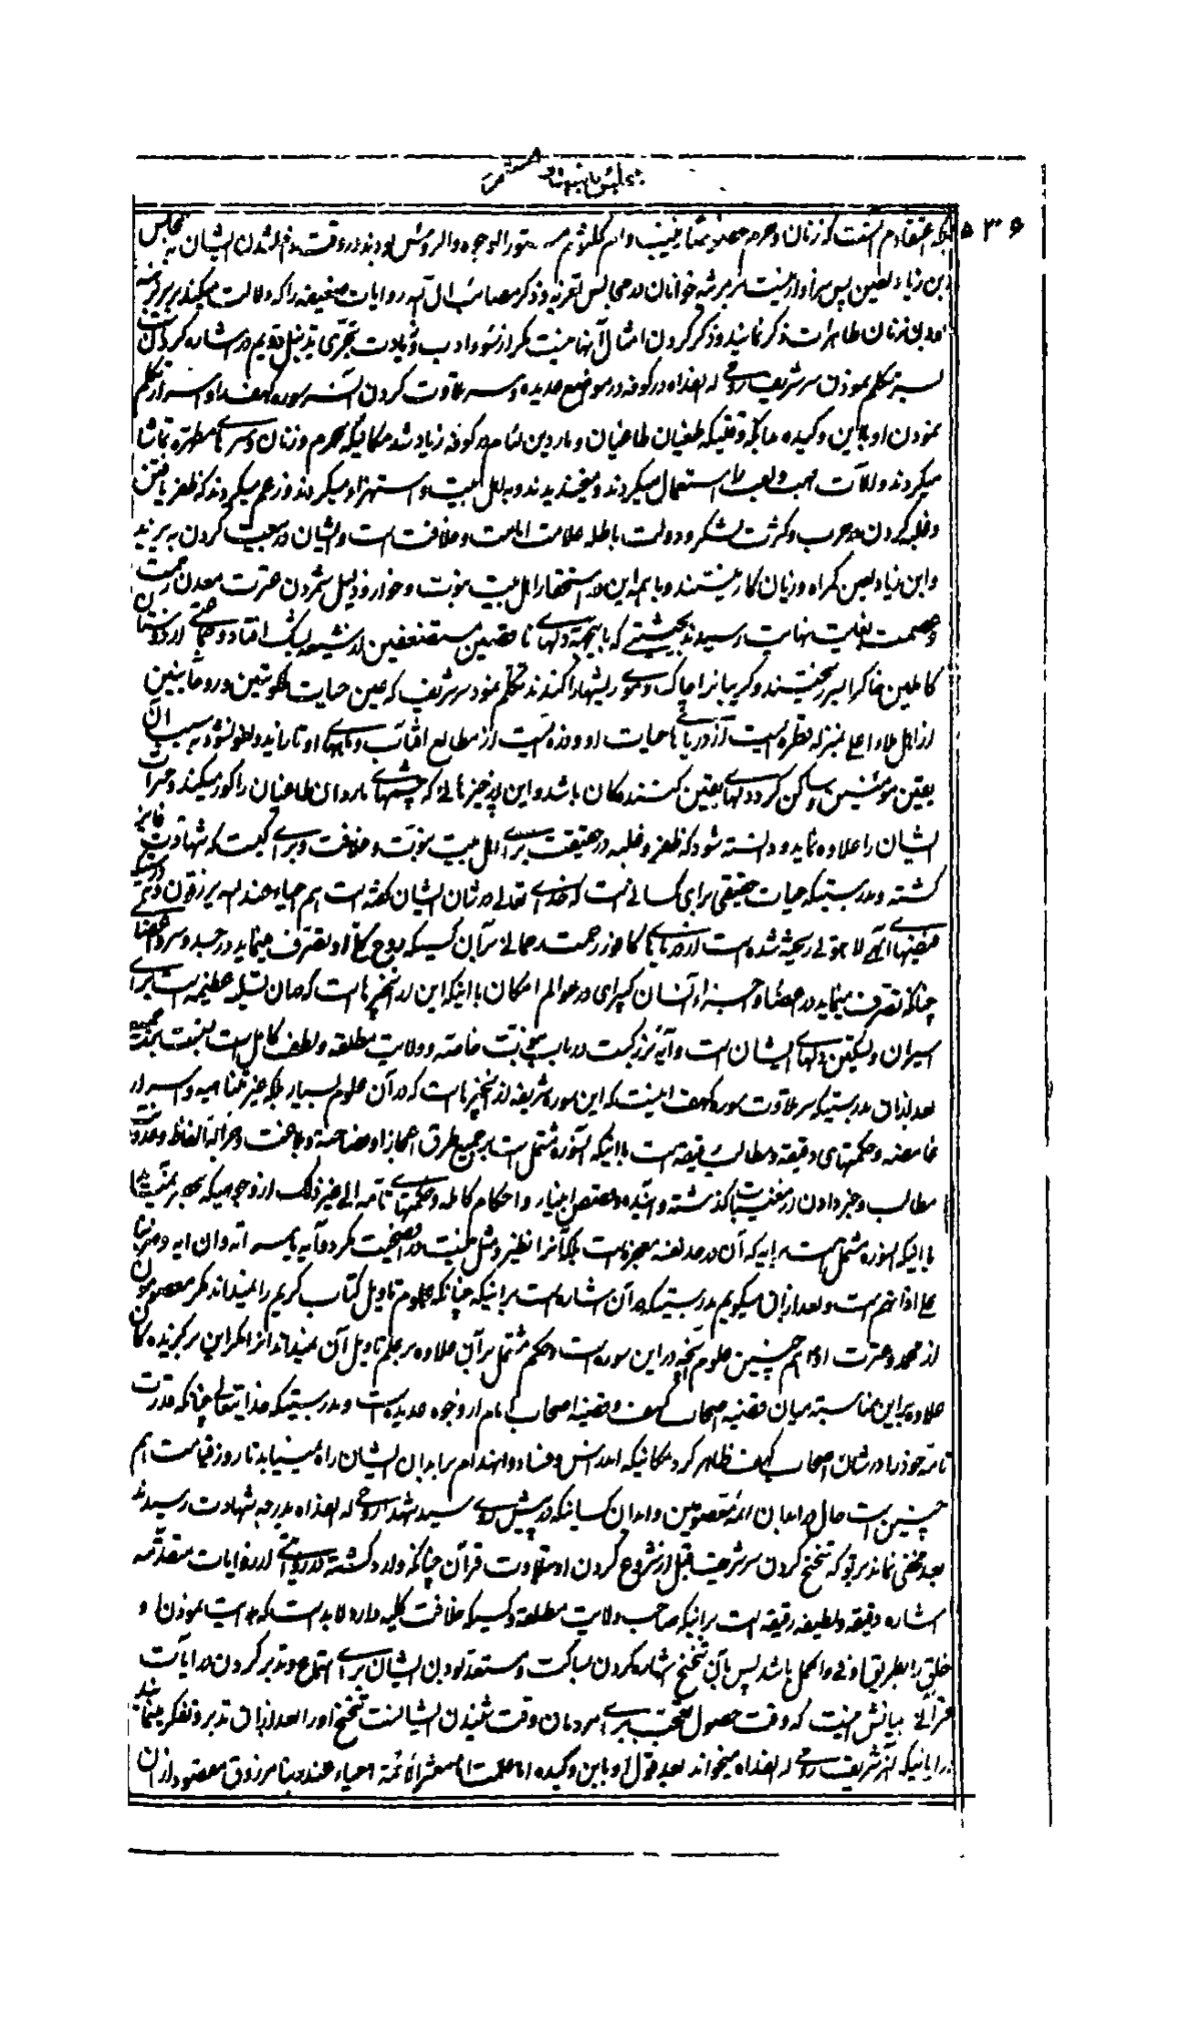 ۵۳۶
بلکه اعتقادم اینست که زنان و حرم خصوصا زینب و ام کلثوم مستورالوجوه والرؤس بودند در وقت داخل شدن ایشان به مجلس
ابن زیاد لعین پس سزاوار نیست که مرثیه خوانان در مجالس تعزیه و ذکر مصائب ال الله روایات ضعیفه را که دلالت میکند بر برهنه
بودن زنان طاهرات ذکر نمایند و ذکر کردن امثال آنها نیست مگر از سوء ادب و زیادت تجری تذییل در اشاره کردن
بسر تکلم نمودن سر شریف روحی له الفداه در کوفه در مواضع عدیده و سر تلاوت کردن آن سر سوره کهف را و اسرار تکلم
نمودن او باین وکیده بلکه وقتیکه طغیان طاغیان و ماردین لئام در کوفه زیاد شد مکانیکه بحرم و زنان و سرهای مطهره تماشا
میکردند و آلات لهب و لعب را استعمال میکردند و میخندیدند و به اهل بیت استهزاء میکردند و زعم میکردند که ظفر یافتن
و غلبه کردن در حرب و کثرت لشکر و دولت باطله علامت امامت و خلافت است و ایشان در بیعت کردن به یزید
و ابن زیاد لعین گمراه و زیان کار نیستند و با همه این استحقار اهل بیت نبوت و خوار و ذلیل شمردن عترت معدن رحمت
و عصمت بغایت نهایت رسیدند بحیثیتی که باینجهة دلهای ناقصین مستضعفین از شیعه بشک افتاد و جمعی از دوستان
کاملین خاک را بسر ریختند و گریبانرا چاک و موی ریشها را کندند تکلم نمود سر شریف که عین حیات ملکوتیین و روحانیین
از اهل ملاء اعلی بمنزله قطره ایست از دریای حیات او و ذره ایست از مطالع آفتاب او تا زاید بسبب آن
یقین مومنین و ساکن گردد دلهای یقین کنندگان باشد و این از چیزهائی که چشمهای ماردان طاغیان را کور میکند و حسرات
ایشان را علاوه نماید و دانسته شود که ظفر و غلبه در حقیقت برای اهل بیت نبوت و خلافت و برای کیست که شهادت فائز
گشته و بدرستیکه حیات حقیقی برای کسانی است که خدای تعالی در شان ایشان گفته است بل احیاء عند ربهم یرزقون
فیضهای لاهوتی ریخته شده است از دریای کافور رحمت رحمانی بر آن کسیکه روح کلی او تصرف مینماید در جسد و سر و اعضا
چنانکه تصرف مینماید در اعضا و اجزاء انسان کبرای در عوالم امکان با اینکه این از آنچیزهاست که در آن تسلیه عظیمه است برای
اسیران و تسکین دلهای ایشان است و آیه بزرگیست در باب محبت خاصه و ولایت مطلقه و لطف کامل است نسبت
بعد از آن بدرستیکه سر تلاوت سوره کهف اینست که این سوره شریفه از آنچیزهاست که در آن علوم بسیار بلکه غیر متناهیه و اسرار
غامضه و حکمتهای دقیقه و مطالب نفیسه است با اینکه آنسوره مشتمل است بر جمیع طرق اعجاز از فصاحت و بلاغت و جزالت الفاظ و عذوبت
مطالب و خبر دادن از مغیبات گذشته و آینده و قصص اخیار و احکام کامله و حکمتهای تامه الی غیر ذلک از وجوهیکه
با اینکه آنسوره مشتمل است بر آیه که آن در حد نفسه معجزه است بلکه آنرا نظیر و مثل نیست در
علی اذانهم است و بعد از آن میگویم بدرستیکه در آن اشاره است بر اینکه چنانکه علوم تاویل کتاب کریم را نمیداند مگر معصومون
از محمد و عترت او هم چنین علوم آنچه در این سوره است و حکم مشتمل بر آن علاوه بر علم تاویل آن نمیداند آنرا مگر این برگزیده گان
علاوه بر این مناسبت میان قضیه اصحاب کهف و قضیه اصحاب امام از وجوه عدیده است و بدرستیکه خدایتعالی چنانکه قدرت
تامه خود را در شان اصحاب کهف ظاهر کرد مکانیکه اندراس و فساد و انهدام بر ابدان ایشان راه نمییابد تا روز قیامت هم
چنین است حال در ابدان ائمه معصومین و ابدان کسانیکه در پیش روی سید شهدا روحی له الفداه بدرجه شهادت رسیدند
بعد مخفی نماند بر تو که تنحنح کردن سر شریف قبل از شروع کردن او بتلاوت قرآن چنانکه وارد گشته در روایتی از روایات متقدمه
اشاره دقیقه و لطیفه رقیقه است بر اینکه صاحب ولایت مطلقه و کسیکه خلافت کلیه دارد لابد است که هدایت نمودن او
خلق را بطریق اوفی و اکمل باشد پس با آن تنحنح اشاره کردن بساکت و مستعد بودن ایشان برای استماع و تدبر کردن در آیات
قرآنی بیانش اینست که وقت حصول تعجب برای مردمان وقت شنیدن ایشانست تنحنح او را بعد از آن تدبر و تفکر مینمایند
در آیاتیکه آنسر شریف روحی له الفداه میخواند بعد قول او باین وکیده اما علمت انا معشر الائمة احیاء عند ربنا نرزق مقصود از آن